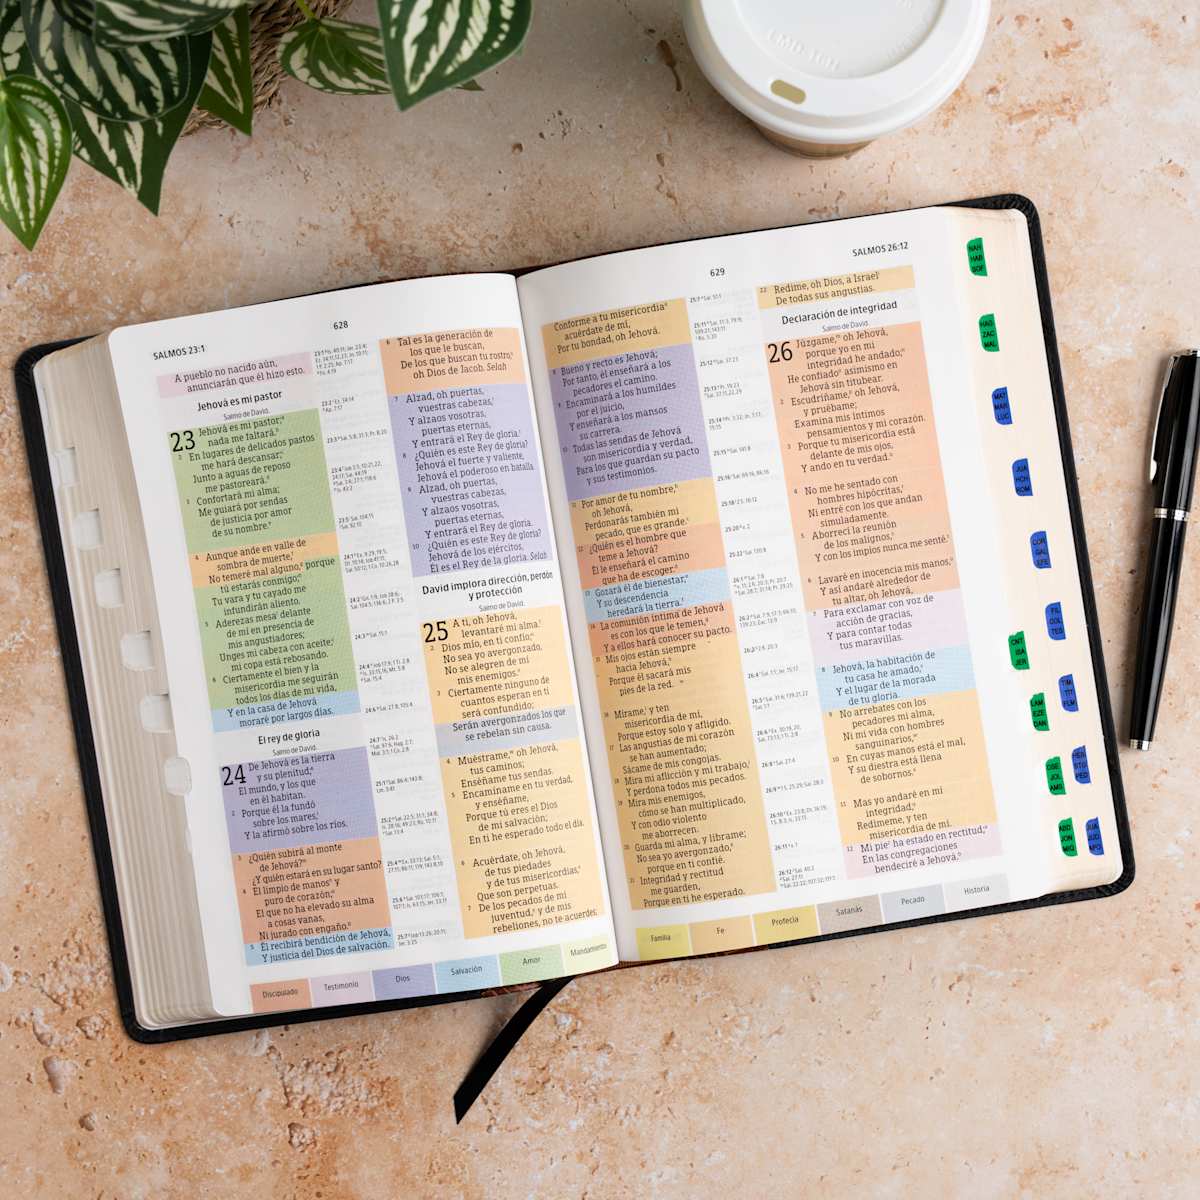 SALMOS 23:1
628
A pueblo no nacido aún,
anunciarán que él hizo esto.
Jehová es mi pastor
Salmo de David.
23 Jehová es mi pastor;
nada me faltará.
2 En lugares de delicados pastos
me hará descansar;
Junto a aguas de reposo
me pastoreará.
3 Confortará mi alma;
Me guiará por sendas
de justicia por amor
de su nombre.
4 Aunque ande en valle de
sombra de muerte,
No temeré mal alguno, porque
tú estarás conmigo;
Tu vara y tu cayado me
infundirán aliento.
5 Aderezas mesa delante
de mí en presencia de
mis angustiadores;
Unges mi cabeza con aceite;
mi copa está rebosando.
6 Ciertamente el bien y la
misericordia me seguirán
todos los días de mi vida,
Y en la casa de Jehová
moraré por largos días.
El rey de gloria
Salmo de David.
24 De Jehová es la tierra
y su plenitud,
El mundo, y los que
en él habitan.
2 Porque él la fundó
sobre los mares,
Y la afirmó sobre los ríos.
3 ¿Quién subirá al monte
de Jehová?
¿Y quién estará en su lugar santo?
4 El limpio de manos y
puro de corazón;
El que no ha elevado su alma
a cosas vanas,
Ni jurado con engaño.
5 Él recibirá bendición de Jehová,
Y justicia del Dios de salvación.
6 Tal es la generación de
los que le buscan,
De los que buscan tu rostro,
oh Dios de Jacob. Selah
7 Alzad, oh puertas,
vuestras cabezas,
Y alzaos vosotras,
puertas eternas,
Y entrará el Rey de gloria.
8 ¿Quién es este Rey de gloria?
Jehová el fuerte y valiente,
Jehová el poderoso en batalla.
9 Alzad, oh puertas,
vuestras cabezas,
Y alzaos vosotras,
puertas eternas,
Y entrará el Rey de gloria.
10 ¿Quién es este Rey de gloria?
Jehová de los ejércitos,
Él es el Rey de la gloria. Selah
David implora dirección, perdón
y protección
Salmo de David.
25 A ti, oh Jehová,
levantaré mi alma.
2 Dios mío, en ti confío;
No sea yo avergonzado,
No se alegren de mí
mis enemigos.
3 Ciertamente ninguno de
cuantos esperan en ti
será confundido;
Serán avergonzados los que
se rebelan sin causa.
4 Muéstrame, oh Jehová,
tus caminos;
Enséñame tus sendas.
5 Encamíname en tu verdad,
y enséñame,
Porque tú eres el Dios
de mi salvación;
En ti he esperado todo el día.
6 Acuérdate, oh Jehová,
de tus piedades
y de tus misericordias,
Que son perpetuas.
7 De los pecados de mi
juventud, y de mis
rebeliones, no te acuerdes;
Discipulado
Testimonio
Dios
Salvación
Amor
Mandamiento
629
SALMOS 26:12
Conforme a tu misericordia
acuérdate de mí,
Por tu bondad, oh Jehová.
8 Bueno y recto es Jehová;
Por tanto, él enseñará a los
pecadores el camino.
9 Encaminará a los humildes
por el juicio,
Y enseñará a los mansos
su carrera.
10 Todas las sendas de Jehová
son misericordia y verdad,
Para los que guardan su pacto
y sus testimonios.
11 Por amor de tu nombre,
oh Jehová,
Perdonarás también mi
pecado, que es grande.
12 ¿Quién es el hombre que
teme a Jehová?
Él le enseñará el camino
que ha de escoger.
13 Gozará él de bienestar,
Y su descendencia
heredará la tierra.
14 La comunión íntima de Jehová
es con los que le temen,
Y a ellos hará conocer su pacto.
15 Mis ojos están siempre
hacia Jehová,
Porque él sacará mis
pies de la red.
16 Mírame, y ten
misericordia de mí,
Porque estoy solo y afligido.
17 Las angustias de mi corazón
se han aumentado;
Sácame de mis congojas.
18 Mira mi aflicción y mi trabajo,
Y perdona todos mis pecados.
19 Mira mis enemigos,
cómo se han multiplicado,
Y con odio violento
me aborrecen.
20 Guarda mi alma, y líbrame;
No sea yo avergonzado,
porque en ti confié.
21 Integridad y rectitud
me guarden,
Porque en ti he esperado.
22 Redime, oh Dios, a Israel
De todas sus angustias.
Declaración de integridad
Salmo de David.
26 Júzgame, oh Jehová,
porque yo en mi
integridad he andado;
He confiado asimismo en
Jehová sin titubear.
2 Escudríñame, oh Jehová,
y pruébame;
Examina mis íntimos
pensamientos y mi corazón.
3 Porque tu misericordia está
delante de mis ojos,
Y ando en tu verdad.
4 No me he sentado con
hombres hipócritas,
Ni entré con los que andan
simuladamente.
5 Aborrecí la reunión
de los malignos,
Y con los impíos nunca me senté.
6 Lavaré en inocencia mis manos,
Y así andaré alrededor de
tu altar, oh Jehová,
7 Para exclamar con voz de
acción de gracias,
Y para contar todas
tus maravillas.
8 Jehová, la habitación de
tu casa he amado,
Y el lugar de la morada
de tu gloria.
9 No arrebates con los
pecadores mi alma,
Ni mi vida con hombres
sanguinarios,
10 En cuyas manos está el mal,
Y su diestra está llena
de sobornos.
11 Mas yo andaré en mi
integridad;
Redímeme, y ten
misericordia de mí.
12 Mi pie ha estado en rectitud;
En las congregaciones
bendeciré a Jehová.
Familia
Fe
Profecía
Satanás
Pecado
Historia
NAH
HAB
SOF
HAG
ZAC
MAL
MAT
MAR
LUC
JUA
HCH
ROM
COR
GAL
EFE
FIL
COL
TES
CNT
ISA
JER
TIM
TIT
FLM
LAM
EZE
DAN
OSE
JOL
AMS
HEB
STG
PED
ABD
JON
MIQ
JUA
JUD
APO